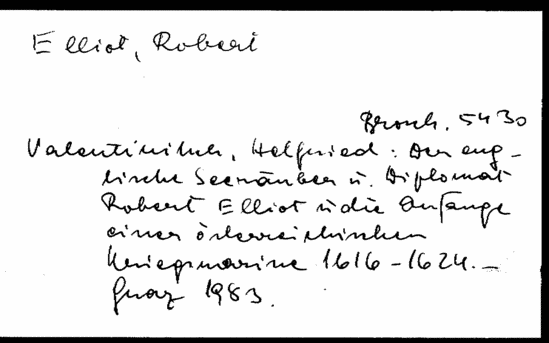 Elliot, Robert
Brosch. 5430
Valentinitsch, Helfried: Der eng-
lische Seeräuber u. Diplomat
Robert Elliot u die Anfänge
einer österreichischen
Kriegsmarine 1616-1624.-
Graz 1983.